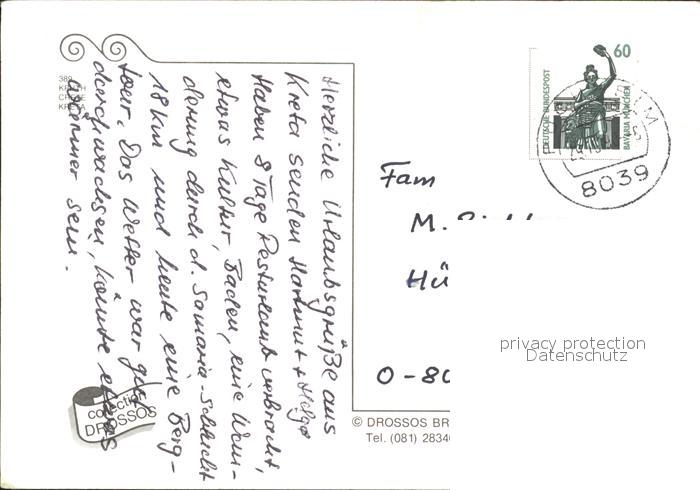 Herzliche Urlaubsgrüße aus
Kreta senden Hartmut + Helga
Haben 8 Tage Resturlaub verbracht,
etwas Kultur, Baden, eine Wan-
derung durch d. Samaria-Schlucht
18 km und heute eine Berg-
tour. Das Wetter war gut
durchwachsen, könnte etwas
wärmer sein.
389
KRETA
collection
DROSSOS
60
DEUTSCHE BUNDESPOST
BAVARIA MÜNCHEN
8039
Fam
M.
Hü
O-80
privacy protection
Datenschutz
© DROSSOS BR
Tel. (081) 2834